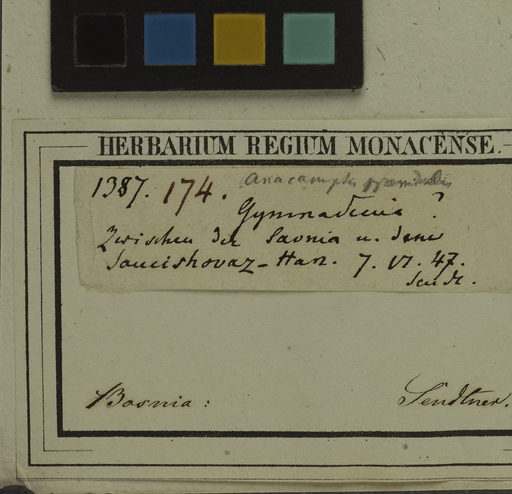 HERBARIUM REGIUM MONACENSE.
1387. 174. Anacamptis pyramidalis
Gymnadenia ?
Zwischen der Savnia u. dem
Han. 7. VI. 47.
Sendt.
Bosnia : Sendtner.